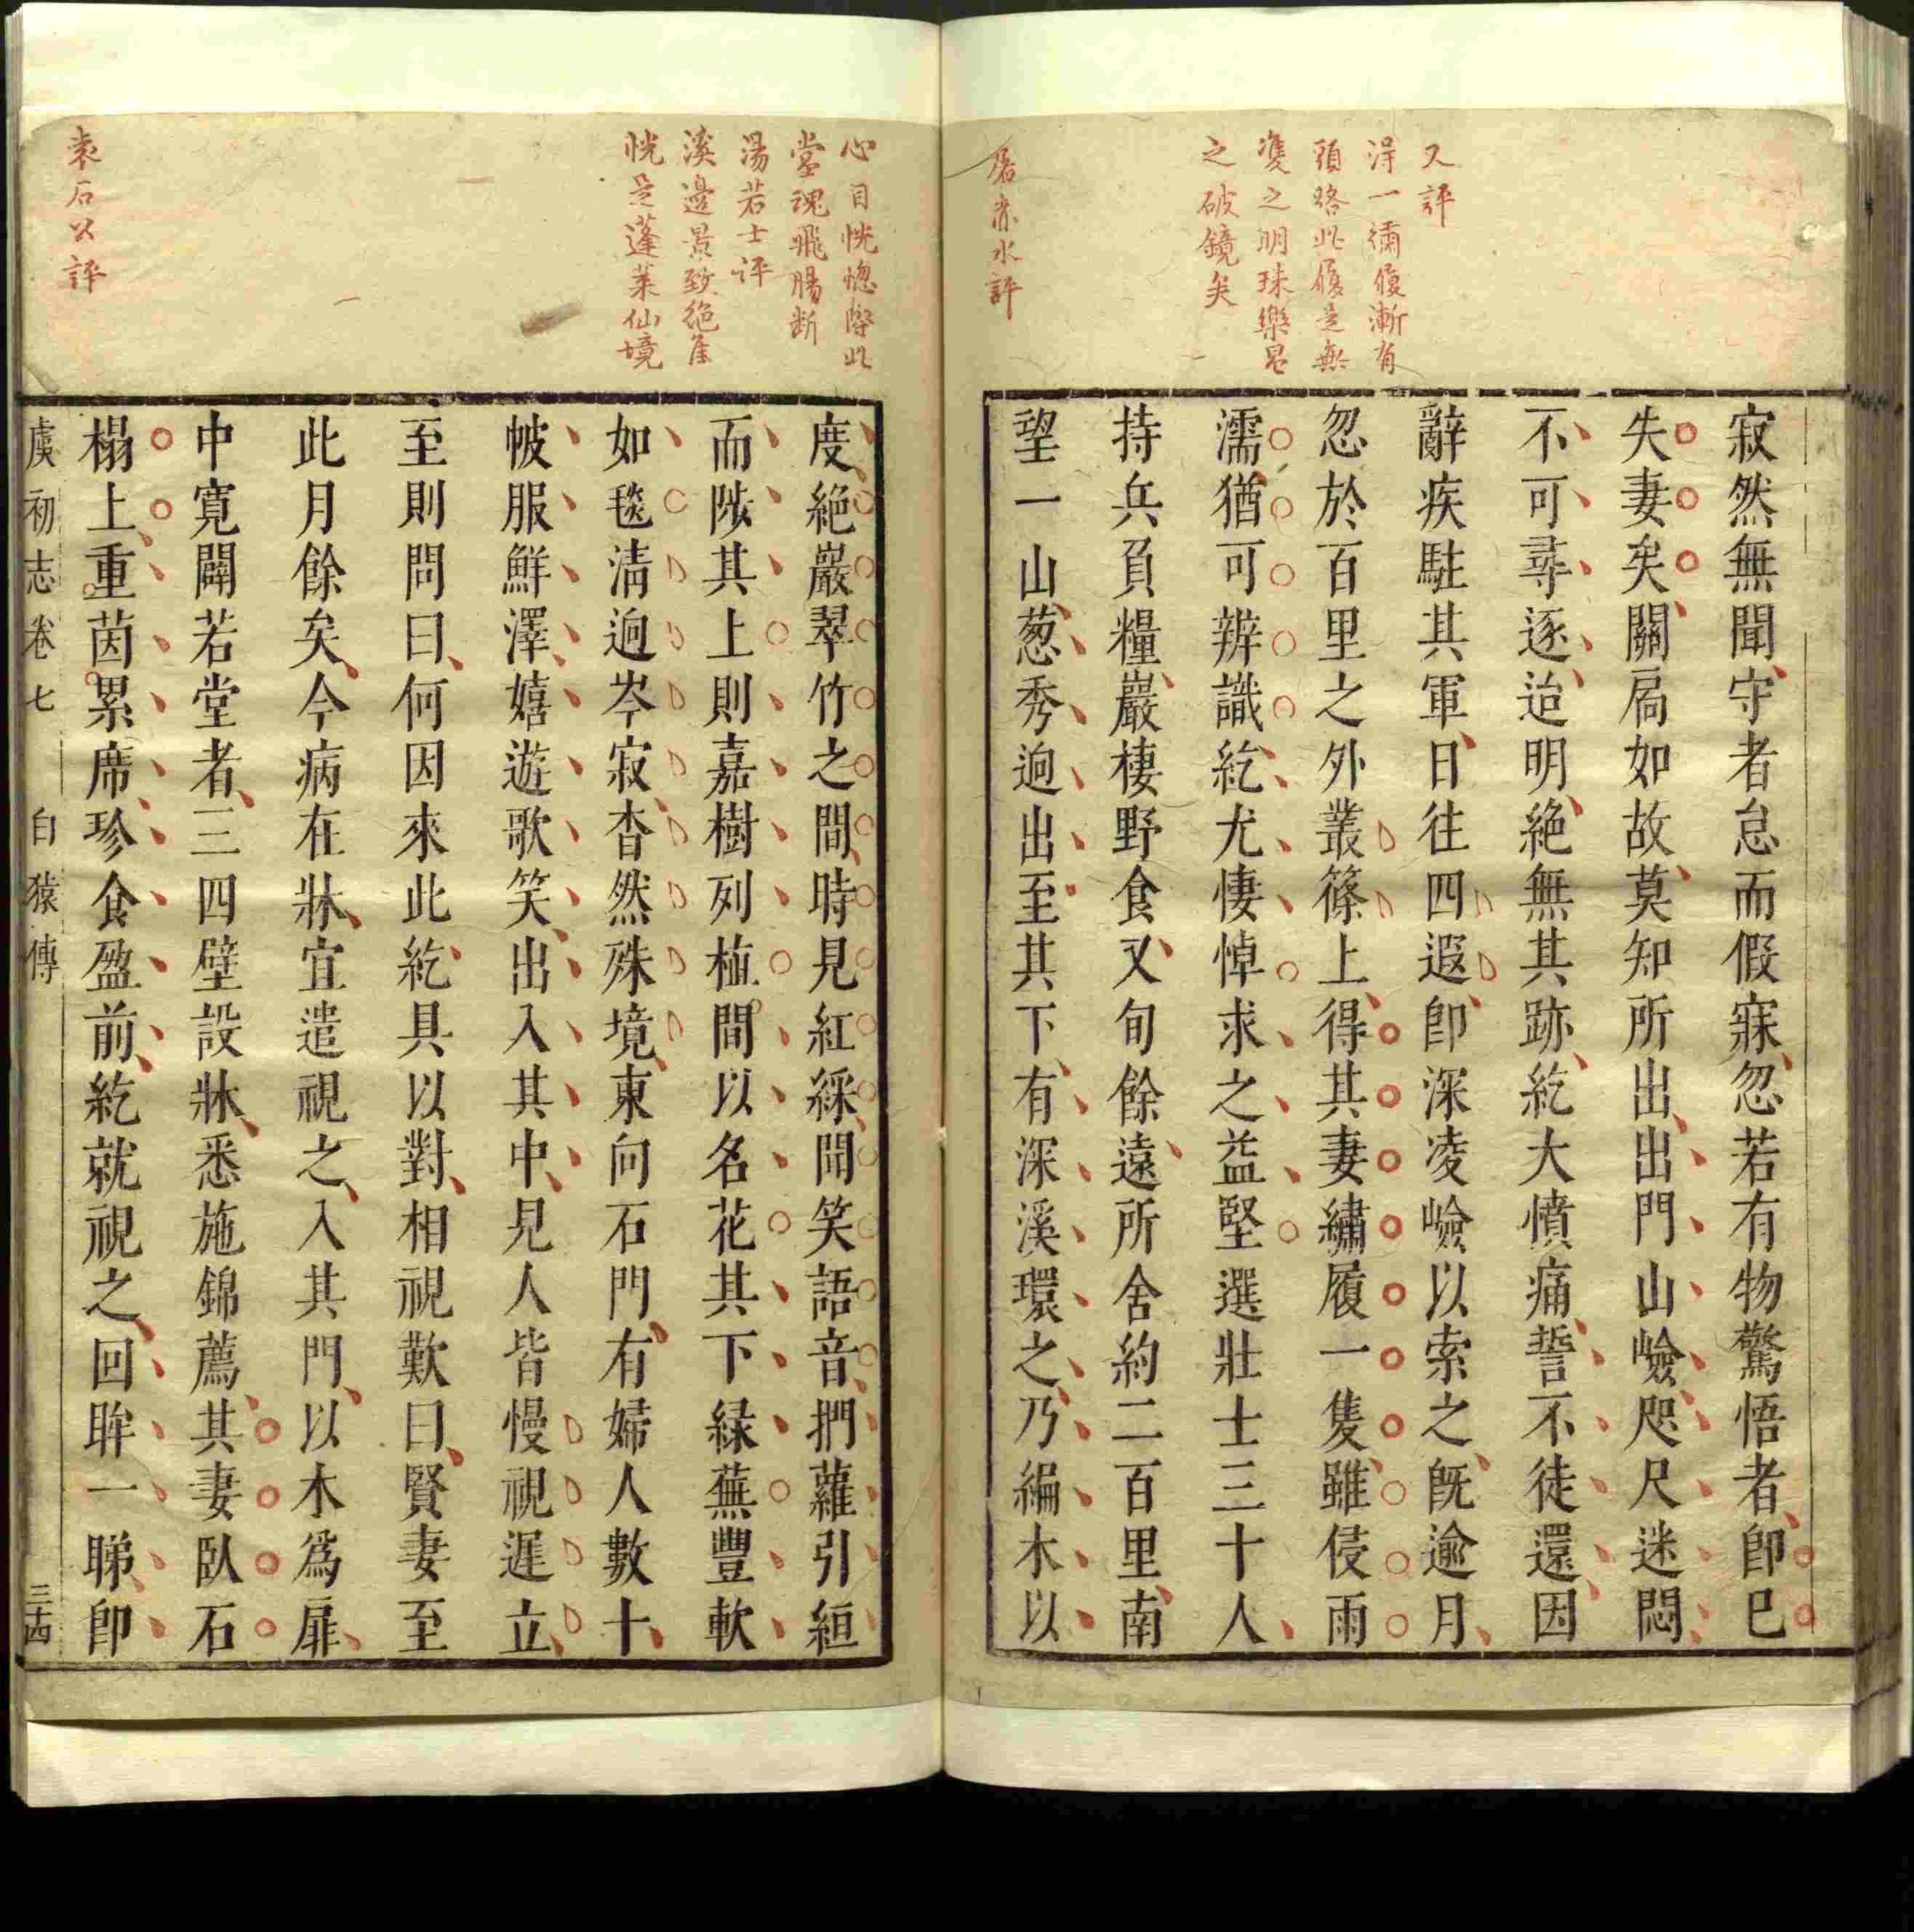 又評
得一繡履漸有
頭路此履是無
雙之明珠樂昌
之破鏡矣
屠赤水評
寂然無聞守者怠而假寐忽若有物驚悟者卽已
失妻矣關扃如故莫知所出出門山嶮咫尺迷悶
不可尋逐迨明絕無其跡紇大憤痛誓不徒還因
辭疾駐其軍日往四遐卽深凌嶮以索之旣逾月
忽於百里之外叢篠上得其妻繡履一隻雖侵雨
濡猶可辨識紇尤悽悼求之益堅選壯士三十人
持兵負糧巖棲野食又旬餘遠所舍約二百里南
望一山葱秀逈出至其下有深溪環之乃編木以
心目恍惚際此
當魂飛腸斷
湯若士評
溪邊景致絕隹
恍是蓬萊仙境
袁石公評
度絕巖翠竹之間時見紅綵聞笑語音捫蘿引絙
而陟其上則嘉樹列植間以名花其下緑蕪豐軟
如毯淸逈岑寂杳然殊境東向石門有婦人數十
帔服鮮澤嬉遊歌笑出入其中見人皆慢視遲立
至則問曰何因來此紇具以對相視歎曰賢妻至
此月餘矣今病在牀宜遣視之入其門以木爲扉
中寬闢若堂者三四壁設牀悉施錦薦其妻臥石
榻上重茵累席珍食盈前紇就視之回眸一睇卽
虞初志卷七 白猿傳 三十四